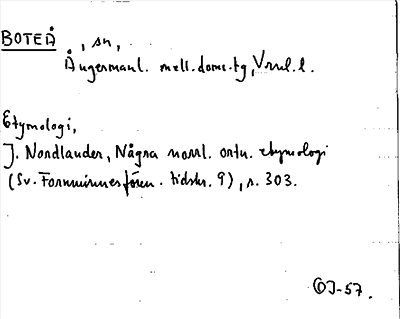 BOTEÅ, sn,
Ångermanl. mell. doms.tg, Vrml. l.
Etymologi,
J. Nordlander, Några norrl. ortn. etymologi
(Sv. Fornminnesfören. tidskr. 9), s. 303.
OJ-57.